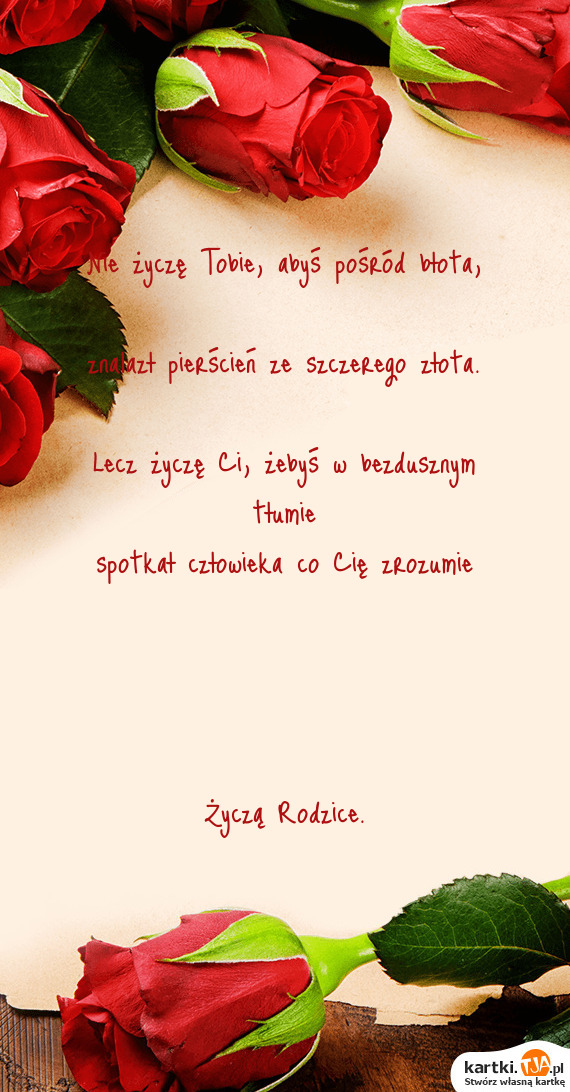 Nie życzę Tobie, abyś pośród błota,
znalazł pierścień ze szczerego złota.
Lecz życzę Ci, żebyś w bezdusznym
tłumie
spotkał człowieka co Cię zrozumie
Życzą Rodzice.
kartki.TJA.pl
Stwórz własną kartkę